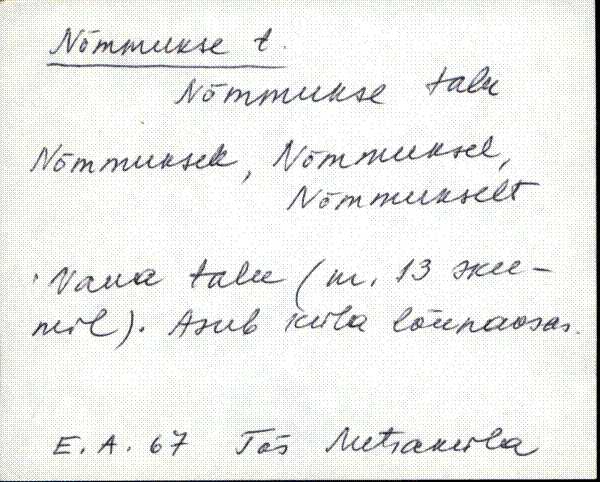 Nõmmukse t.
Nõmmukse talu
Nõmmuksele, Nõmmuksel,
Nõmmukselt
Vana talu (nr. 13 skee-
mil). Asub küla lõunaosas.
E. A. 67 Tõs Metsaküla